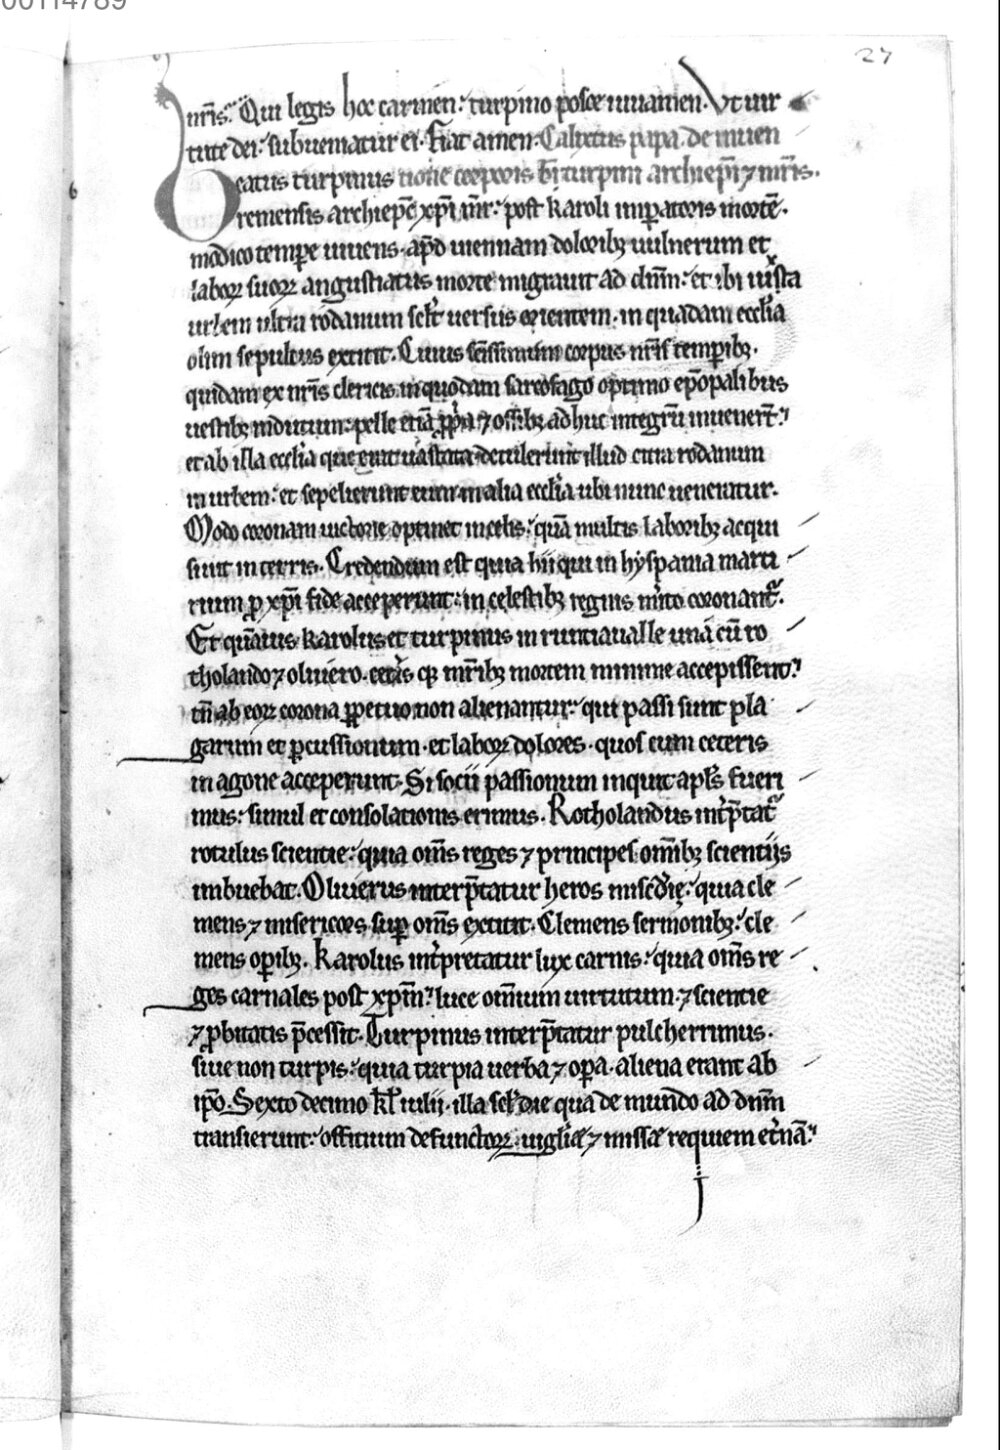 00114789
27
nr̄is. Qui legis hoc carmen: turpino posce iuuamen. Vt uir
tute dei: subueniatur ei. Fiat amen. Calixtus papa. de inuen
eatus turpinus tione corporis b̄i turpini archiep̄i ⁊ mr̄is.
remensis archiep̄c xp̄i mr̄: post karoli imꝑatoris mortē.
modico temꝑe uiuens. ap̄d uiennam doloribꝫ uulnerum et
laboꝝ suoꝝ angustiatus morte migrauit ad dn̄m: et ibi iuxta
urbem ultra rodanum scl̄t uersus orientem. in quadam eccl̄ia
olim sepultus extitit. Cuius sc̄issimum corpus nr̄is temꝑibꝫ.
quidam ex nr̄is clericis. in quodam sarcofago optimo ep̄opalibus
uestibꝫ indutum: pelle etiā ꝓp̄a ⁊ ossibꝫ adhuc integrū inuenert̄:
et ab illa eccl̄ia que erat uastata detulerunt illud citra rodanum
in urbem: et sepelierunt eum in alia eccl̄ia ubi nunc ueneratur.
Modo coronam uictorie optinet in celis: quā multis laboribꝫ acqui
siuit in terris. Credendum est quia hii qui in hyspania marti
rium ꝓ xp̄i fide acceperunt: in celestibꝫ regnis m̄ito coronant᷑.
Et quāuis karolus et turpinus in runciaualle unā cū ro
tholando ⁊ oliuero. cet̄is qꝫ mr̄ibꝫ mortem minime accepissent:
tn̄ ab eoꝝ corona ꝑpetuo non alienantur: qui passi sunt pla
garum et ꝑcussionum. et laboꝝ dolores. quos cum ceteris
in agone acceperunt. Si socii passionum inquit apl̄s fueri
mus: simul et consolationis erimus. Rotholandus int̄p̄tat᷑
rotulus scientie: quia om̄s reges ⁊ principes om̄ibꝫ scientiis
imbuebat. Oliuerus interp̄tatur heros mis̄c̄dię: quia cle
mens ⁊ misericors suꝑ om̄s extitit. Clemens sermonibꝫ: cle
mens oꝑibꝫ. Karolus int̄pretatur lux carnis: quia om̄s re
ges carnales post xp̄m: luce omnium uirtutum. ⁊ scientie
⁊ ꝓbitatis p̄cessit. Turpinus interp̄tatur pulcherrimus.
siue non turpis: quia turpia uerba ⁊ oꝑa. aliena erant ab
ip̄o. Sexto decimo kl̄ iulii. illa scl̄ die qua de mundo ad dn̄m
transierunt: offitium defunctoꝝ. uigl̄ię ⁊ missę requiem et̄nā: